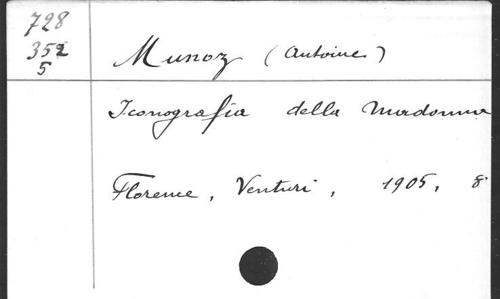 728
352
5
Munoz (Antoine)
Iconografia della Madonna
Florence, Venturi, 1905, 8